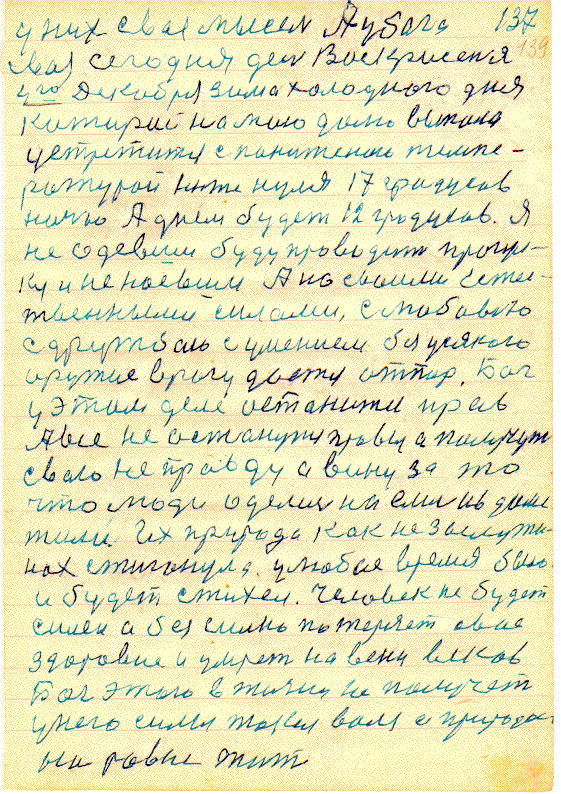 у них своя мысел А у бога 137
своя сегодня ден Воскрисеня 139
4го Декобря зима холодного дня
которой на мою долю выпала
устретитя с понижение темпе-
ратурой ниже нуля 17 градусов
ночю А днем будет 12 градусов. Я
не одевши буду проводит прогул-
ку и не наевши А но своими есте-
твенными силами, с любовю
с дружбою с умением без усякого
оружие врогу дости отпор. Бог
у этом деле останитя прав
А все не останутя правы а получут
свою не правду а вину за то
что люди оделися наелись в доме
жили Их природа как не заслужи-
ных стиганула. у любое время было
и будет стихея. Человек не будет
силен а без силно потеряет свое
здоровие и умрет на веки веков
Бог этого в жизни не получет
у него сила такая воля с природою
на ровне жит